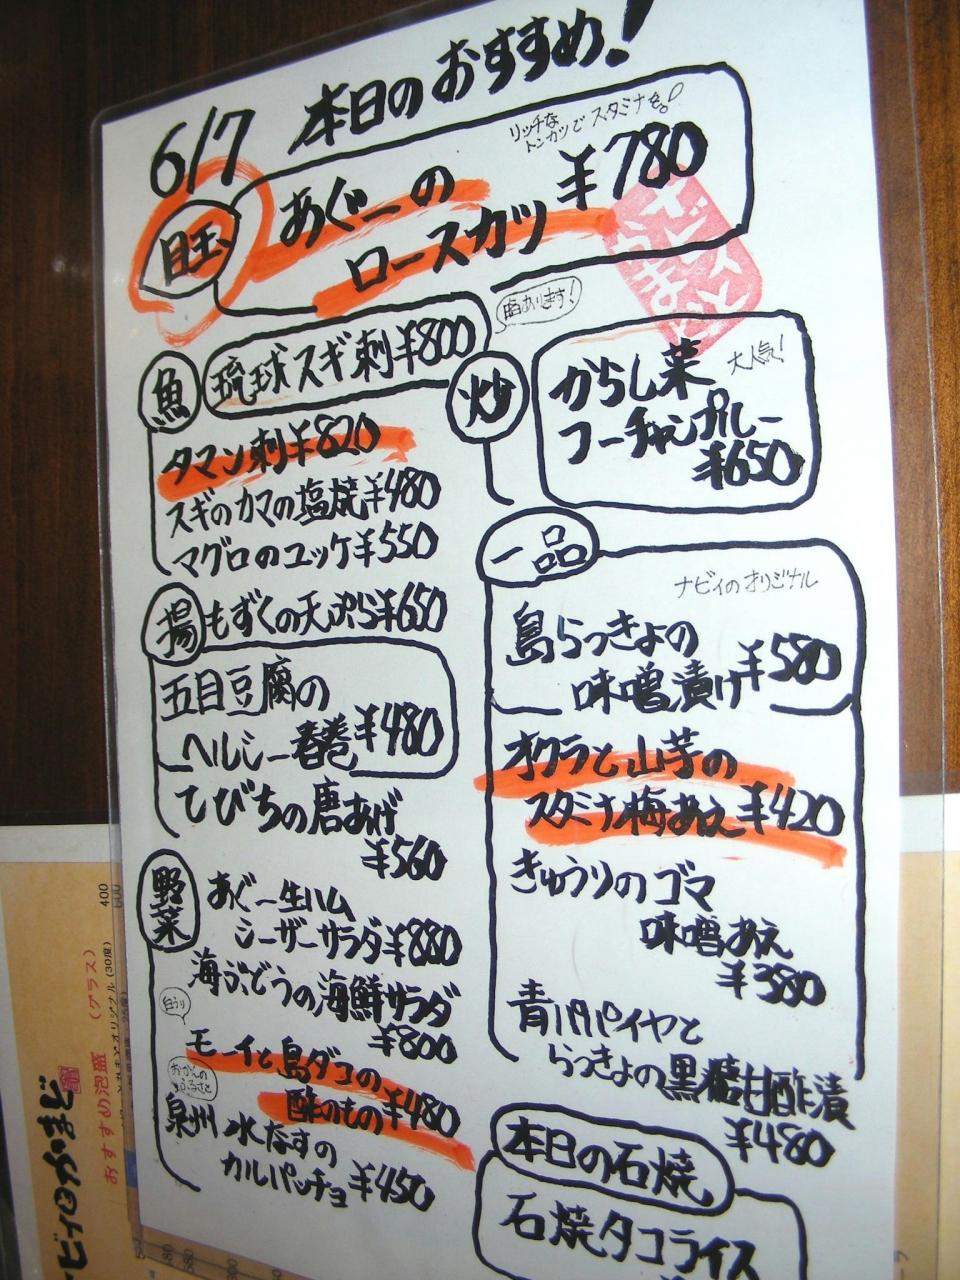 6/7 本日のおすすめ!
リッチな
トンカツでスタミナを!
目玉
あぐーの
ロースカツ ¥780
島あります!
魚
琉球スギ刺¥800
タマン刺¥820
スギのカマの塩焼¥480
マグロのユッケ¥550
揚
もずくの天ぷら¥650
五目豆腐の
ヘルシー春巻¥480
てびちの唐あげ
¥560
野菜
あぐー生ハム
シーザーサラダ¥880
海ぶどうの海鮮サラダ
¥800
白うり
モーイと島ダコの
酢のもの¥480
おかんの
ふるさと
泉州 水なすの
カルパッチョ¥450
炒
大人気!
からし菜
フーチャンプルー
¥650
一品
ナビィのオリジナル
島らっきょの
味噌漬け¥580
オクラと山芋の
スタミナ梅あえ¥420
きゅうりのゴマ
味噌あえ
¥380
青パパイヤと
らっきょの黒糖甘酢漬
¥480
本日の石焼
石焼タコライス
ナビィとかまど
おすすめ泡盛 (グラス)
オリジナル(30度)
400
600
ビィとかまど